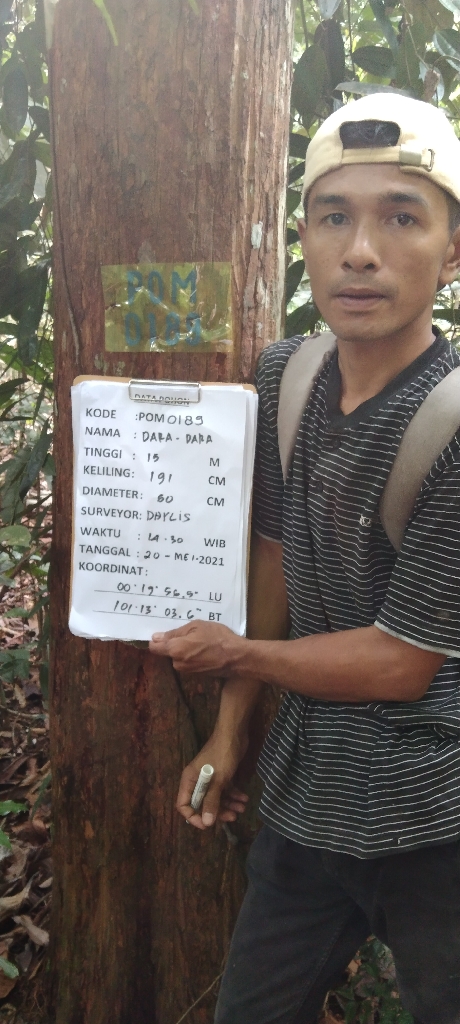 POM
0189
DATA POHON
KODE : POM 0189
NAMA : DARA - DARA
TINGGI : 15 M
KELILING: 191 CM
DIAMETER: 60 CM
SURVEYOR: DAYLIS
WAKTU : 14.30 WIB
TANGGAL : 20 - MEI-2021
KOORDINAT :
00°19' 56,5" LU
101°13' 03,6" BT